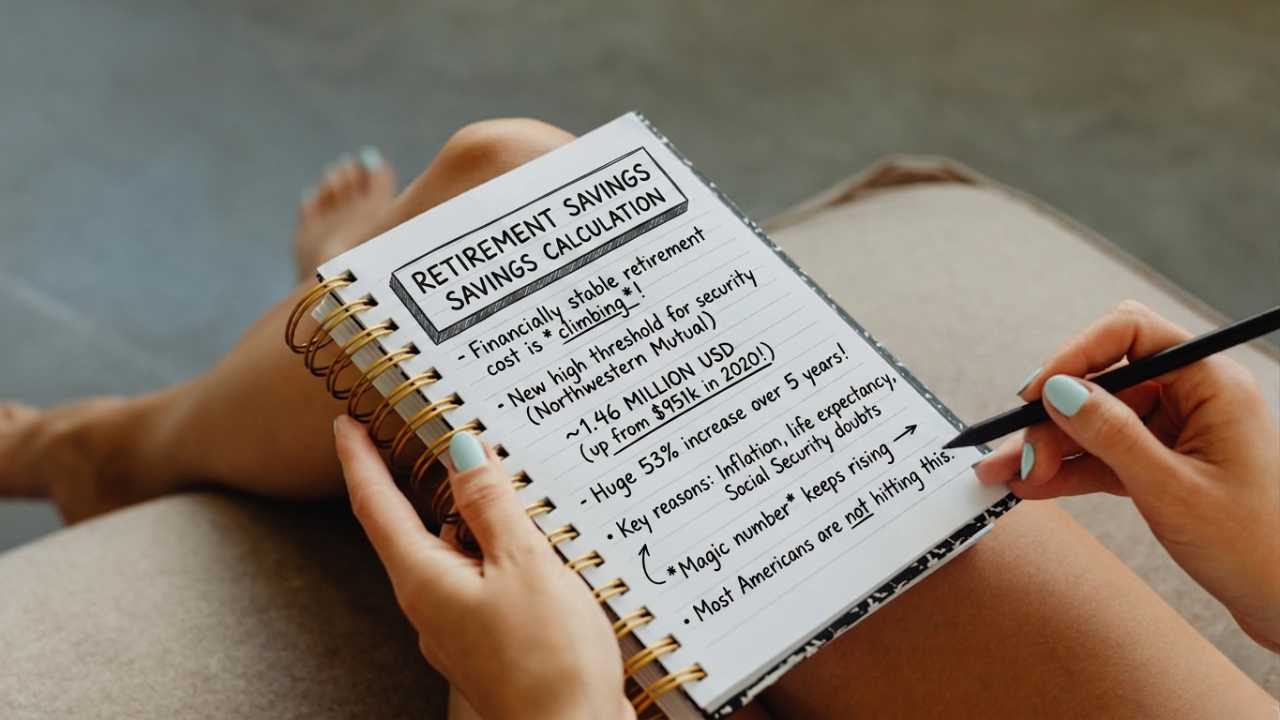 RETIREMENT SAVINGS
SAVINGS CALCULATION
- Financially stable retirement
cost is *climbing*!
- New high threshold for security
(Northwestern Mutual)
~1.46 MILLION USD
(up from $951k in 2020!)
- Huge 53% increase over 5 years!
• Key reasons: Inflation, life expectancy,
Social Security doubts
*Magic number* keeps rising →
• Most Americans are not hitting this.